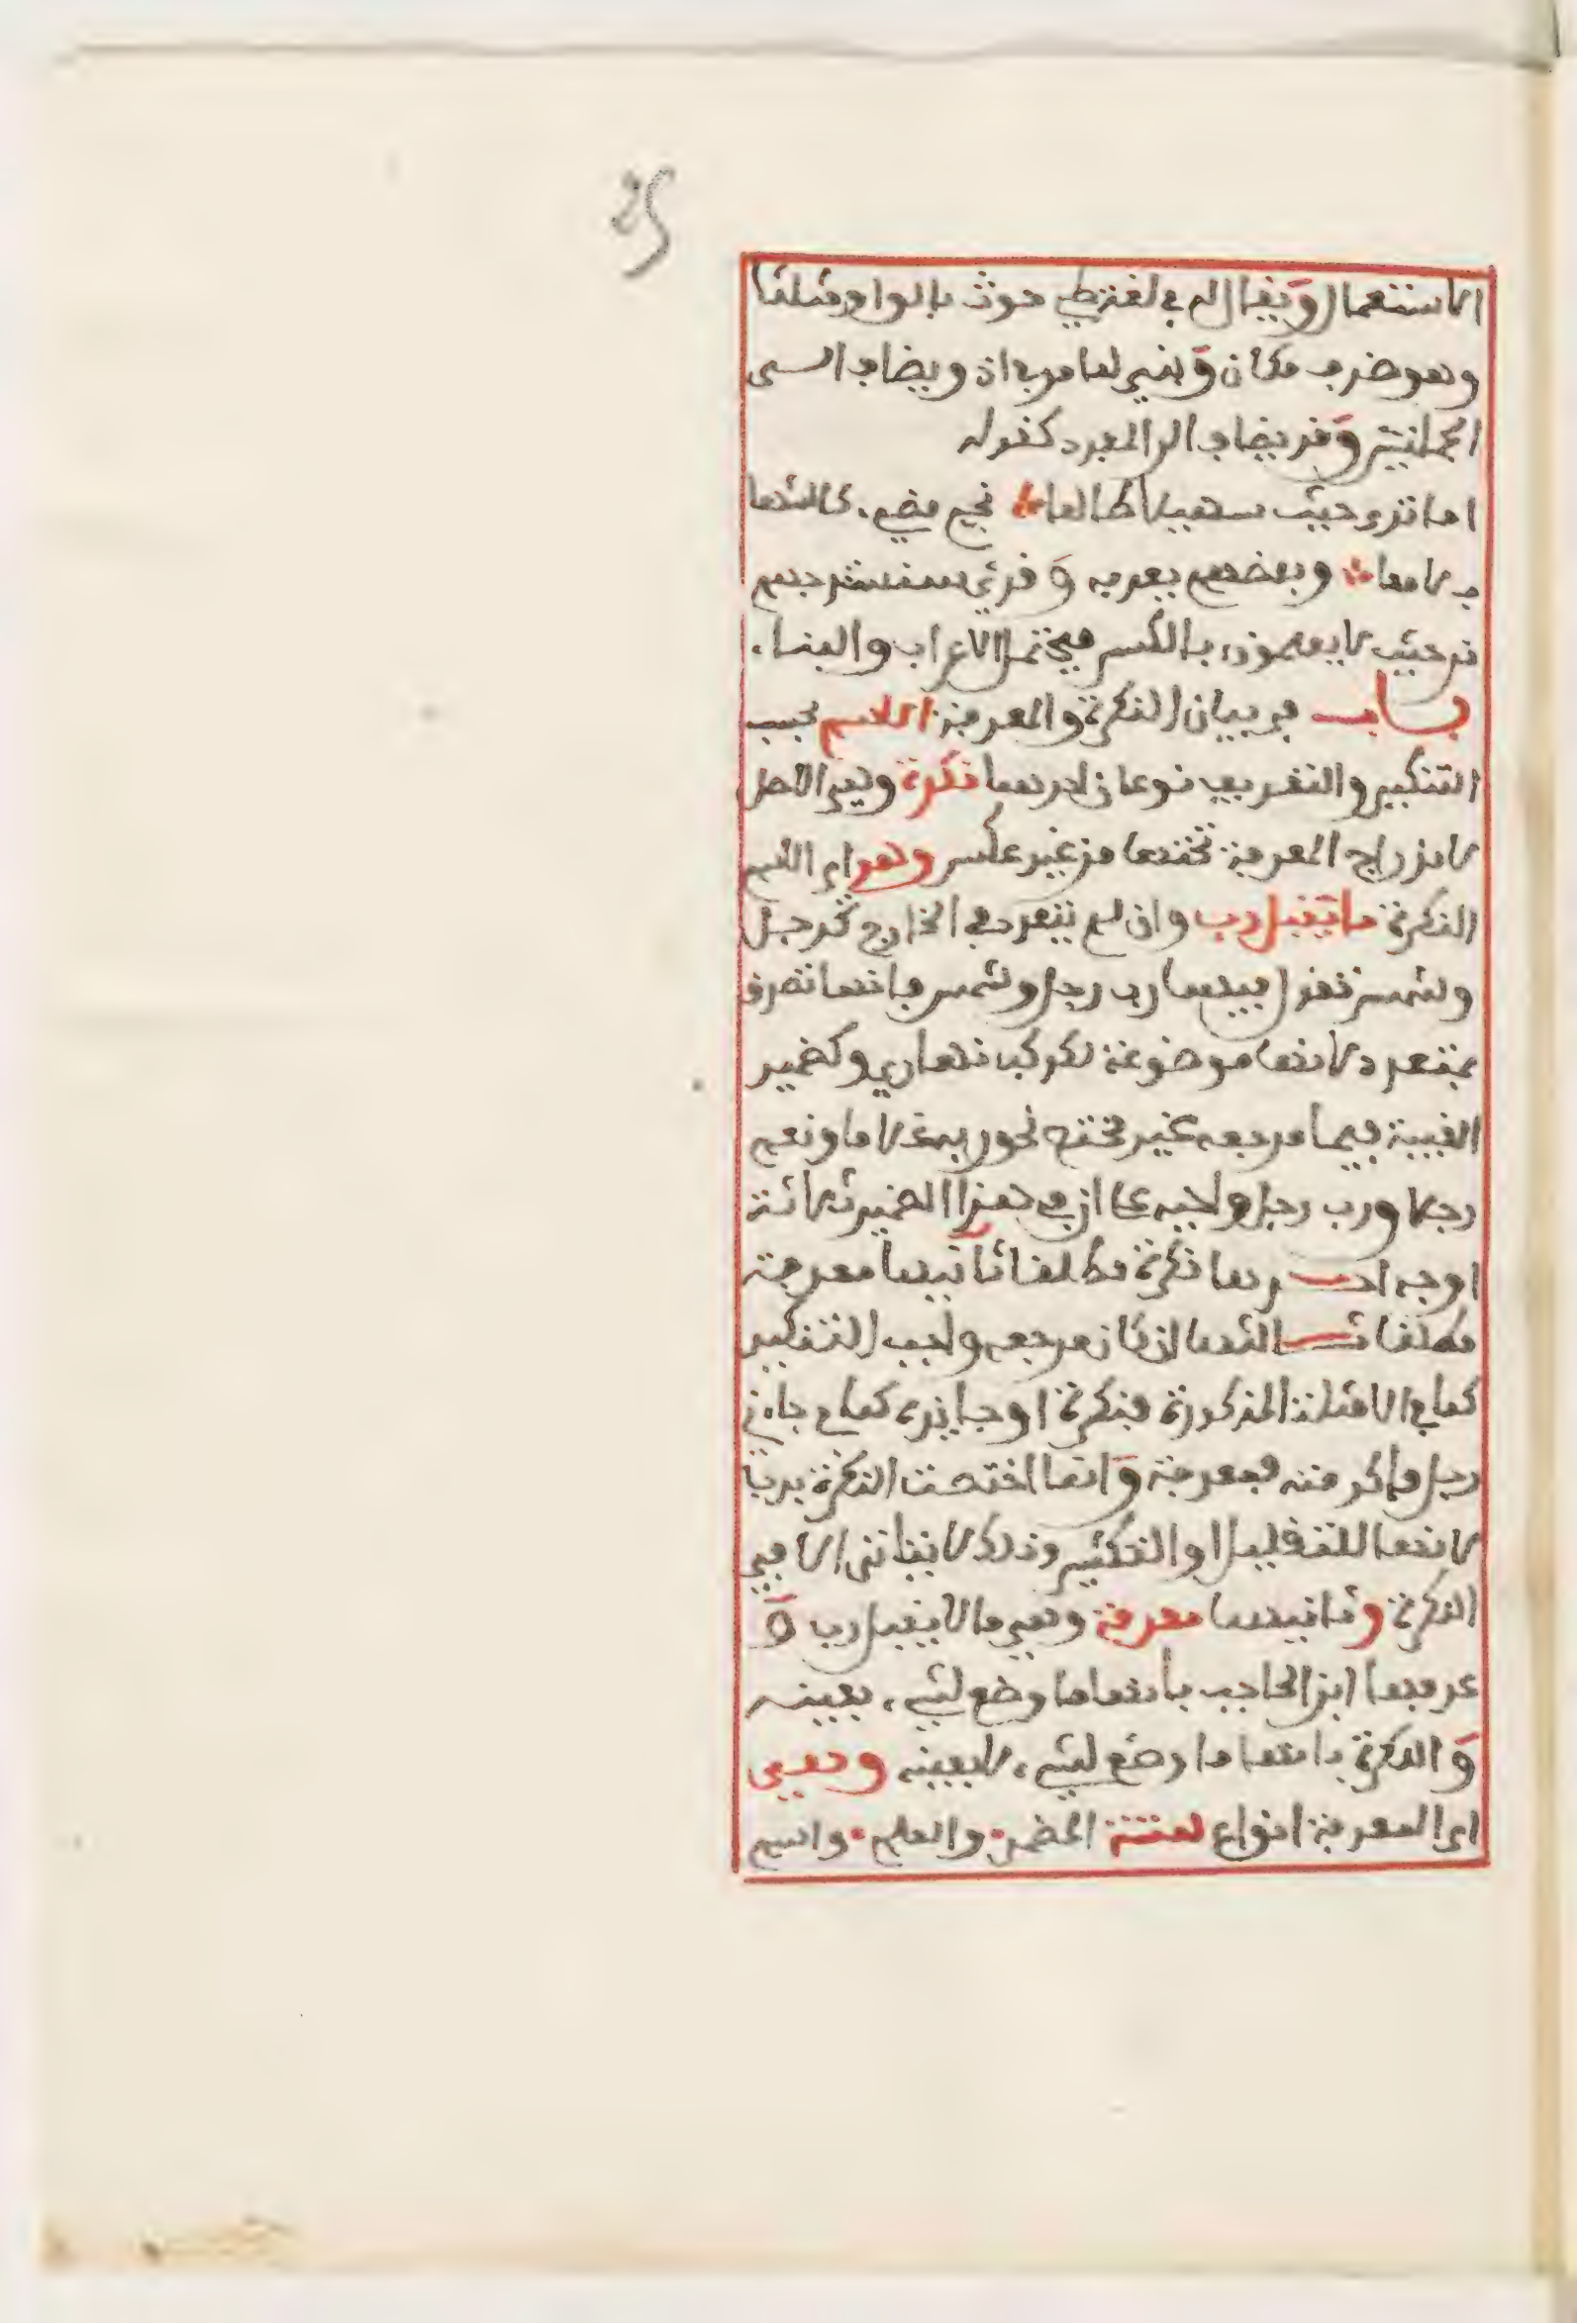 25
الاستعمال ويقال له في لغة طي حوث بالواو ومثلثا
وهو ضرف مكان وبني لما مر في اذ ويضاف الى
الجملتين وقد يضاف الى المفرد كقوله
اما ترى حيث سهيل طالعا نجم مضيء كالشها
ب لامعا وبعضهم يعربه وقرئ سنستدرجهم
من حيث لا يعلمون بالكسر فيحتمل الاعراب والبناء
باب في بيان النكرة والمعرفة الاسم بحسب
التنكير والتعريف نوعان احدهما نكرة وهي الاصل
لاندراج المعرفة تحتها من غير عكس وهو اي الاسم
النكرة ما يقبل رب وان لم يتعدد في الخارج كرجل
وشمس فتقول فيهما رب رجل وشمس فانها تصدق
بمتعدد لانها موضوعة لكوكب نهاري وكضمير
الغيبة فيما مرجعه غير مختص نحو ربه غلاما ونعم
رجلا ورب رجل واخيه على ان في هذا الضمير ثلاثة
اوجه احدها نكرة مطلقا ثانيها معرفة
مطلقا ثالثها ان كان مرجعه واجب التنكير
كما في الامثلة المذكورة فنكرة او جايزه كما في جاءني
رجل فاكرمته فمعرفة وانما اختصت النكرة برب
لانها للتقليل او التكثير وذلك لا يتاتى الا في
النكرة وثانيهما معرفة وهي ما لا يقبل رب و
عرفها ابن الحاجب بانها ما وضع لشيء بعينه
والنكرة بانها ما وضع لشيء لا بعينه وهي
اي المعرفة انواع ستة المضمر والعلم واسم